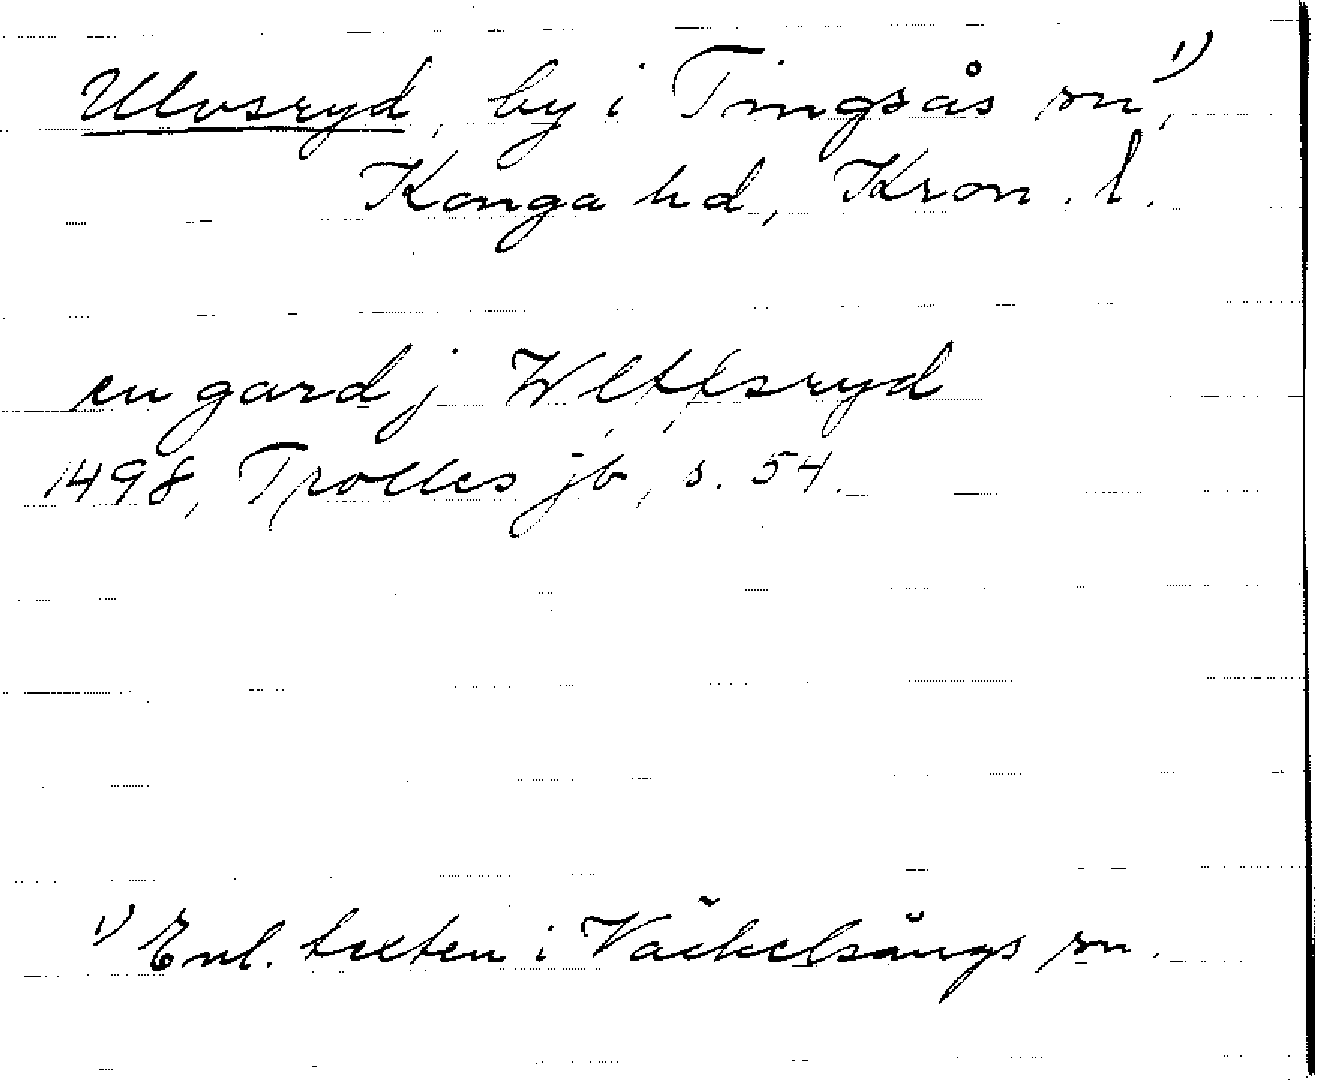 Ulvsryd, by i Tingsås sn 1),
Konga hd, Kron. l.
en gard j Wlffsryd
1498, Trolles jb, s. 54.
1) Enl. texten i Väckelsångs sn.